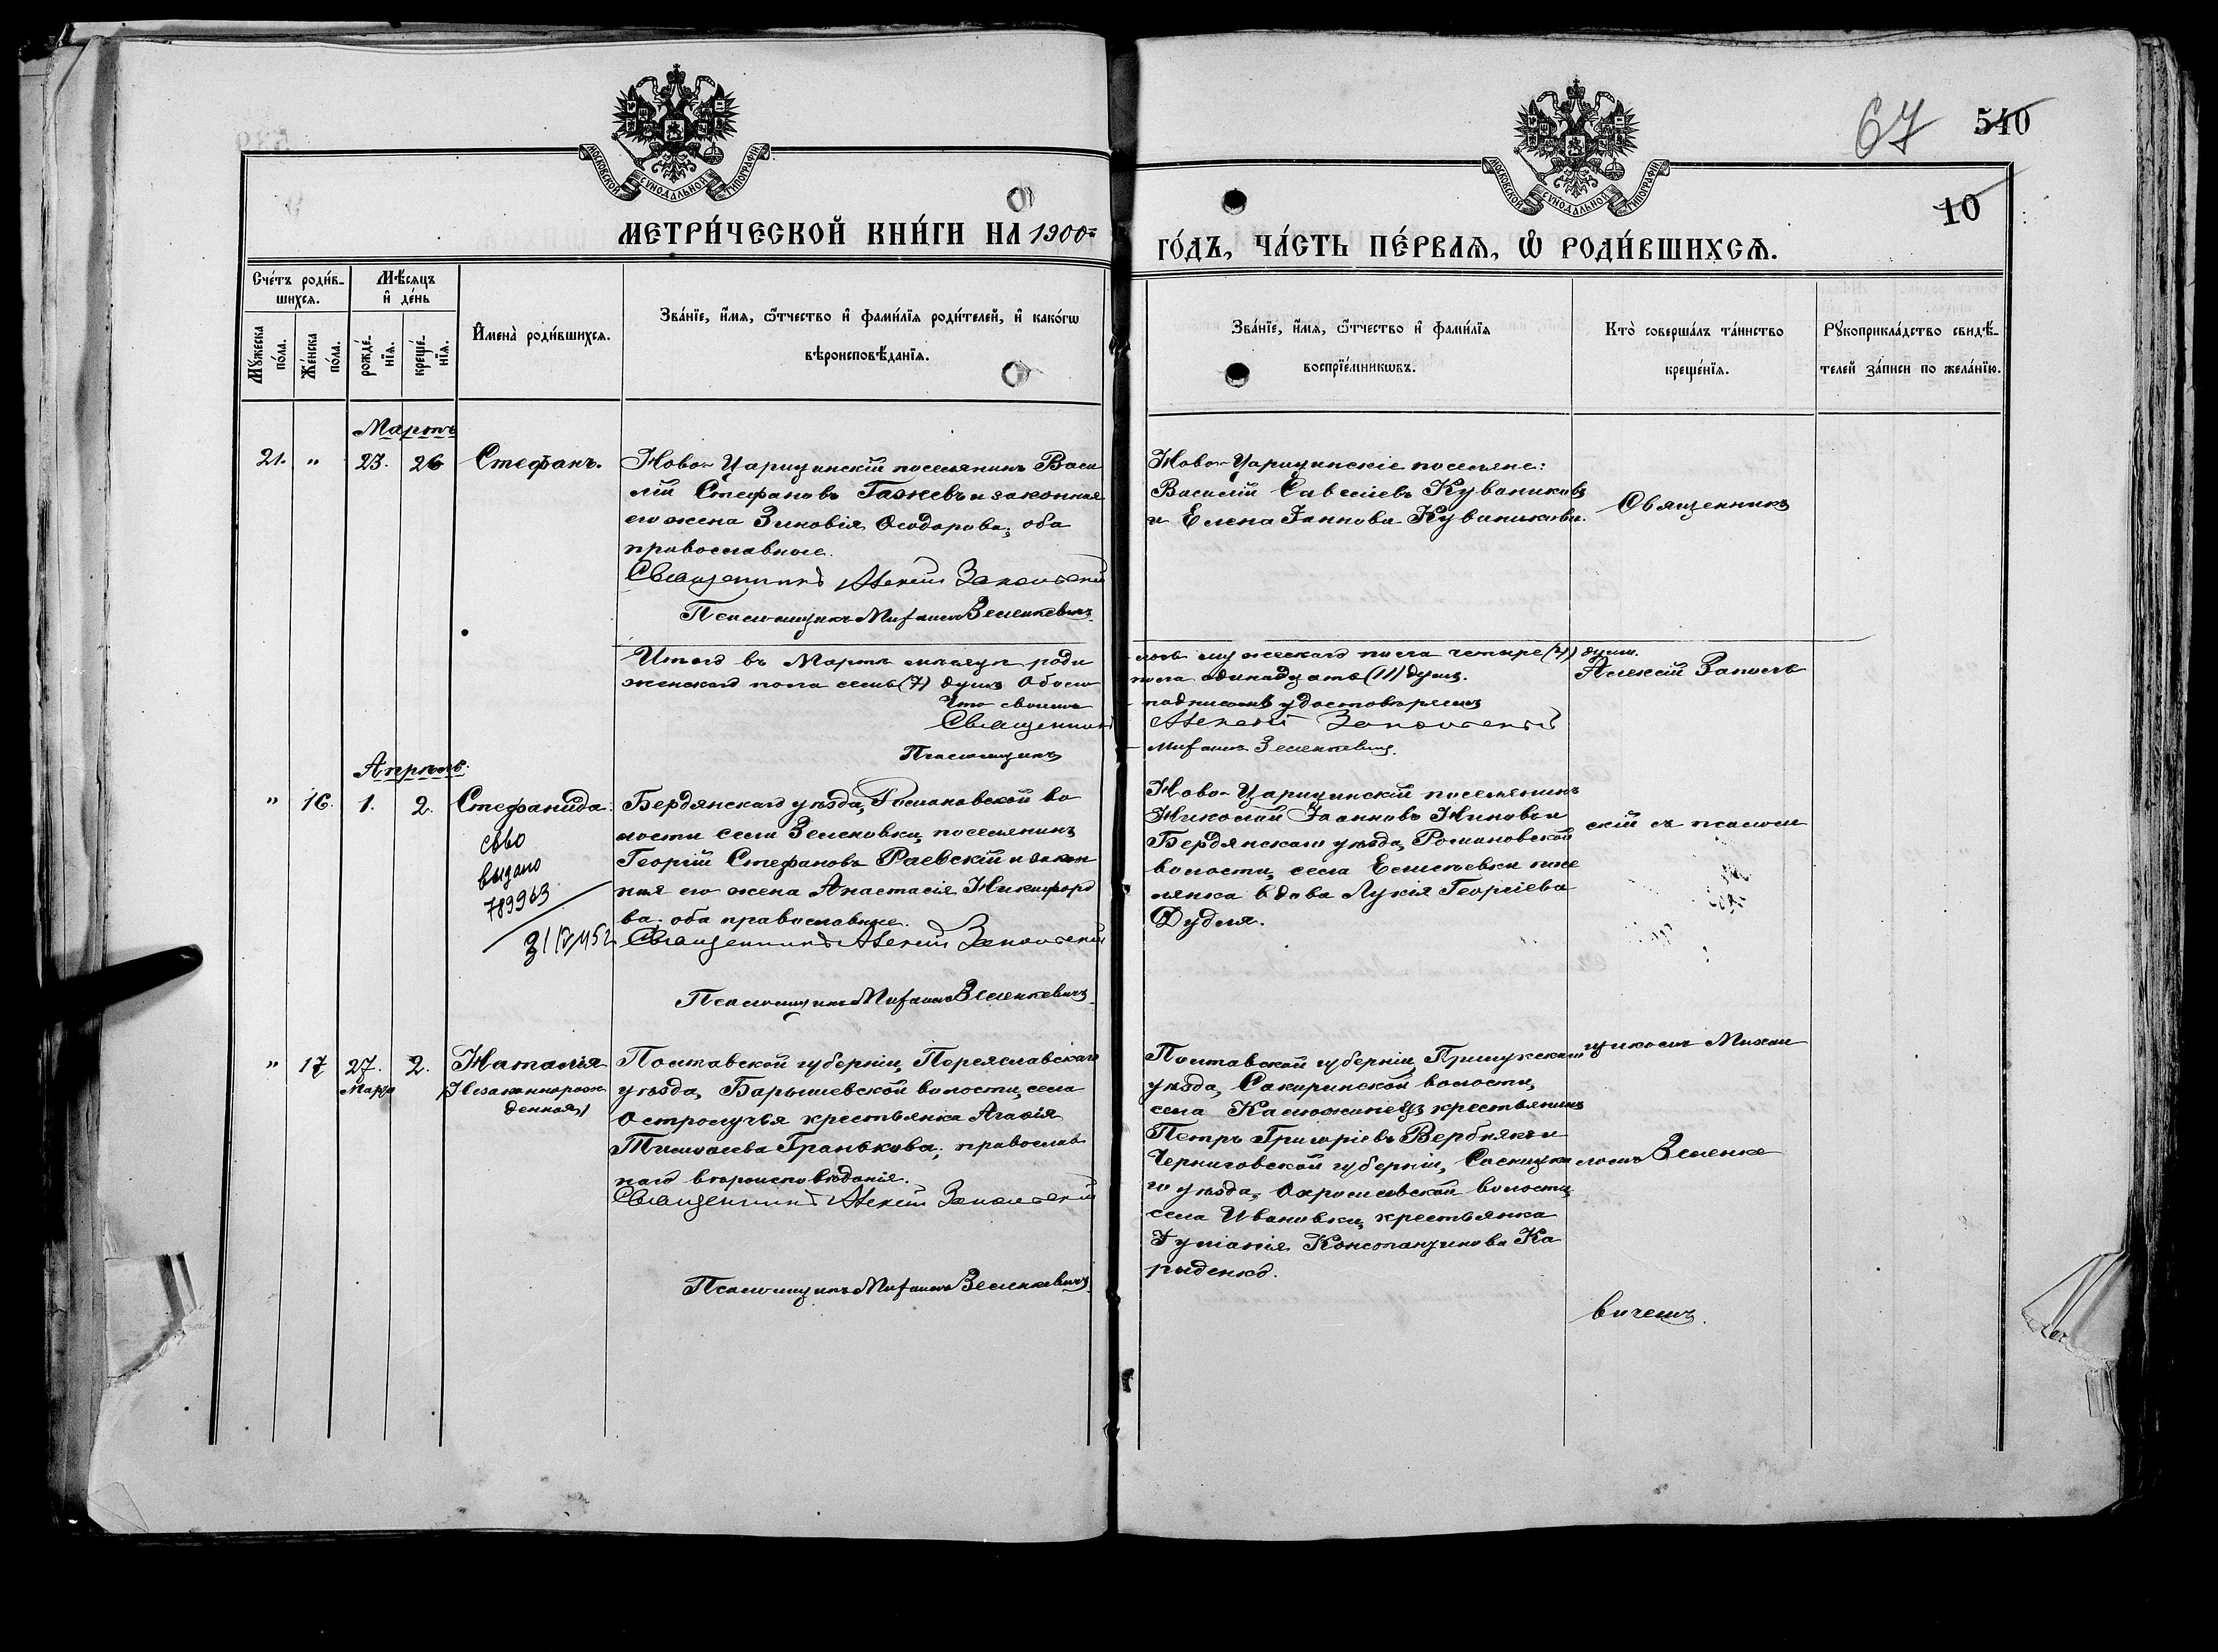 67
540
10
МОСКОВСКОЙ СѴНОДАЛЬНОЙ ТИПОГРАФІИ.
МОСКОВСКОЙ СѴНОДАЛЬНОЙ ТИПОГРАФІИ.
МЕТРИ́ЧЕСКОЙ КНИ́ГИ НА 1900=
ГО́ДЪ, ЧА́СТЬ ПЕ́РВАѦ, Ѡ҆ РОДИ́ВШИХСѦ.
Сче́тъ роди́в-
шихсѧ.
Мѣ́сѧцъ
и҆ де́нь
Мꙋ́жеска
по́ла.
Же́нска
по́ла.
рожде́-
нїѧ.
креще́-
нїѧ.
И҆мена̀ роди́вшихсѧ.
Зва́нїе, и҆́мѧ, ѻ҆́тчество и҆ фами́лїѧ роди́телей, и҆ како́гѡ
вѣроисповѣ́данїѧ.
Зва́нїе, и҆́мѧ, ѻ҆́тчество и҆ фами́лїѧ
воспрїе́мникѡвъ.
Кто̀ соверша́лъ та́инство
креще́нїѧ.
Рꙋкоприкла́дство свидѣ́-
телей за́писи по жела́нїю.
Мартъ
21. " 23. 26 Стефанъ.
Ново-Царицинскій поселянинъ Васи
лій Стефановъ Гажевъ и законная
его жена Зиновія Ѳеодорова; оба
православные.
Священникъ Алексій Запольскій
Псаломщикъ Михаилъ Зеленкевичъ
Ново-Царицинскіе поселяне:
Василій Савеліевъ Куваниковъ
и Елена Іаннова Куваникова.
Священникъ
Итого въ Мартѣ мѣсяцѣ роди
лось мужескаго пола четыре (4) души.
женскаго пола семь (7) душъ Обоего
пола одинадцать (11) душъ.
Что своими
подписомъ удостовѣряемъ
Священникъ
Алексій Запольскій
Псаломщикъ
Михаилъ Зеленкевичъ.
Алексій Заполь
Апрѣль.
" 16. 1. 2. Стефанида.
Св-во
выдано
789963
Бердянскаго уѣзда, Романовской во
лости села Зеленовки, поселянинъ
Георгій Стефановъ Раевскій и закон
ная его жена Анастасія Никифоро
ва; оба православные.
Священникъ Алексій Запольскій
Псаломщикъ Михаилъ Зеленкевичъ
Ново-Царицинскій поселянинъ
Николай Іанновъ Ниновъ и
Бердянскаго уѣзда, Романовской
волости, села посе
лянка вдова Лукія Георгіева
Дудля.
скій съ псалом
" 17 27. 2. Наталія
Марта
/Незаконнорож
денная/
Полтавской губерніи, Переяславскаго
уѣзда, Барышевской волости, села
Остролучья крестьянка Агаѳія
Тимоѳеева Гранькова; православ
наго вѣроисповѣданія.
Священникъ Алексій Запольскій
Псаломщикъ Михаилъ Зеленкевичъ
Полтавской губерніи, Прилукскаго
уѣзда, волости,
села Калюжинецъ крестьянинъ
Петръ Григоріевъ Вербнякъ и
Черниговской губерніи, Сосницка
го уѣзда, волости,
села Ивановки, крестьянка
Іуліанія Константинова Ка
рыденко.
щикомъ Михаи
ломъ Зеленке
вичемъ.